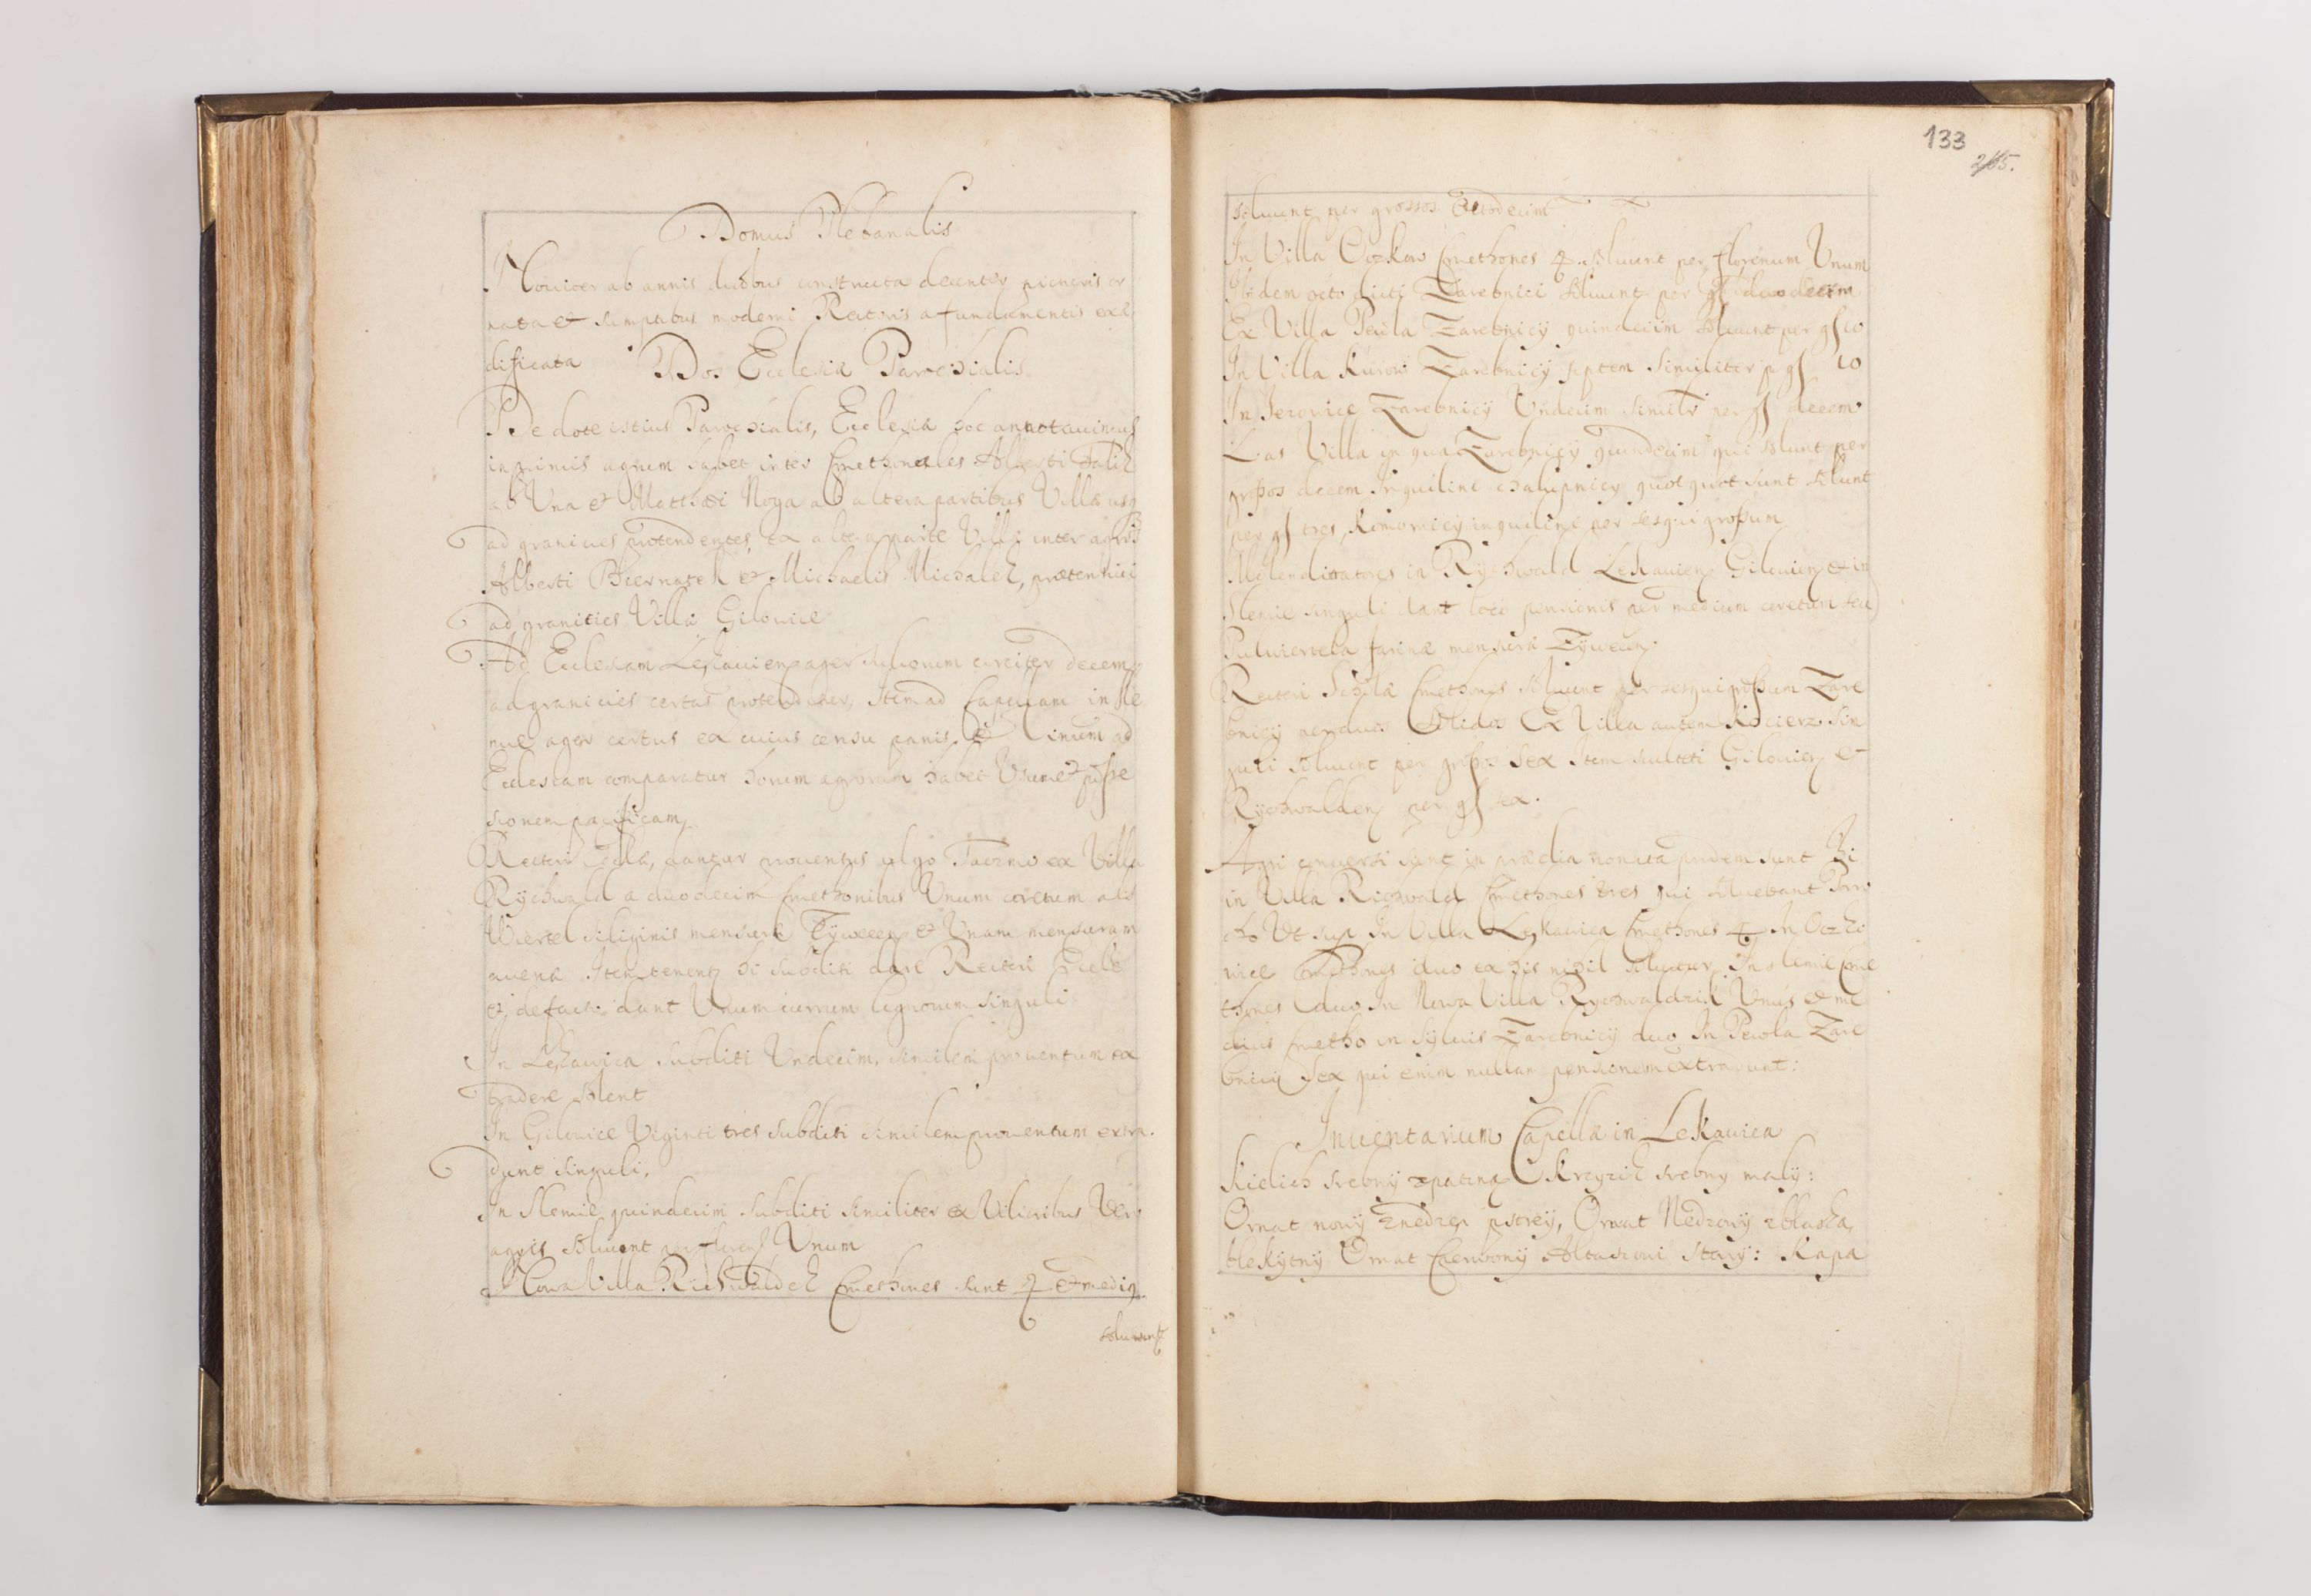 Domus Plebanalis
Nouiter ab annis duobus constructa decenter picturis or
nata et sumptibus moderni Rectoris a fundamentis exæ
dificata Dos Ecclesiæ Parochialis
De dote istius Parochialis, Ecclesiæ hoc annotauimus
inprimis agrum habet inter Cmethonales Alberti
ab Una et Matthæi Noga ab altera partibus Villæ usq
ad granicies protendentes, ex altera parte Villæ inter agros
Alberti Biernatek et Michaelis Michalek, prætensi
ad granities Villæ Gilowice
Ad Ecclesiam Lekauien ager sulcorum circiter decem
ad granicies certas protenditur, Item ad Capellam in Sle
mie ager certus ex cuius censu panis et uinum ad
Ecclesiam comparatur horum agrorum habet Usum et posse
sionem pacificam
Rectori Eccla, dantur prouentus ulgo Taczmo ex Villa
Rychwald a duodecim Cmethonibus Unum coretum als
Wiertel siliginis mensuræ Zÿwiecen et Unam mensuram
auenæ Item tenent hi subditi dare Rectori Eccle
et de facto dant Unum currum lignorum singuli
In Lekauica subditi Undecim, similem prouentum ex
tradere solent
In Gilowice Viginti tres subditi similem prouentum extra
dunt singuli,
In Slemie quindecim subditi similiter ex
soluent per floren Unum
Nowa Villa Richwaldek Cmethones sunt 4 et mediq
soluunt
133
265.
soluunt per grossos Octodecim
In Villa Oczkow Cmethones 4 soluunt per florenum Unum
Ibidem octo dicti Zarebnici soluunt per gs duodecim
Ex Villa Pewla Zarebnicÿ quindecim soluunt per gs 10
In Villa Kurow Zarebnicÿ septem similiter p gs 10
In Jezowice Zarebnicÿ Undecim similr per gs decem
Las Villa in qua Zarebnicÿ quindecim qui soluunt per
grossos decem Inquilini chalupnicy quotquot sunt soluunt
per gs tres, Komornicÿ inquilini per sesqui grossum
Molendinatores in Rÿchwald Lekauien Gilouien et in
Slemie singuli dant loco pensionis per medium coretum seu
Pulwiertela farinæ mensuræ Zÿwiecen.
Rectori Scholæ Cmethones soluunt per sesquigrossum Zare
bnicÿ per duos solidos Ex Villa autem Kocierz sin
guli soluunt per grossos sex Item sculteti Gilouien et
Rÿchwalden per gs sex.
Agri conuersi sunt in prædia non ita pridem sunt hi
in Villa Richwald Cmethones tres qui soluebant Paro
cho Ut supa In Villa Lekauica Cmethones 4 In Oczko
wice Cmethones duo ex his nihil soluitur In Slemie Cme
thones duo In Nowa Villa Rychwaldzik Unus et me
dius Cmetho in Syluis Zarebnicÿ duo In Pewla Zare
bnici Sex qui enim nullam pensionem extradunt:
Inuentarium Capellæ in Lekauica
Kielich srebnÿ z patiną Krzyzik srebny malÿ:
Ornat nowÿ pstrey, Ornat
blekÿtnÿ Ornat Czerwonÿ Altaczowi starÿ: Kapa